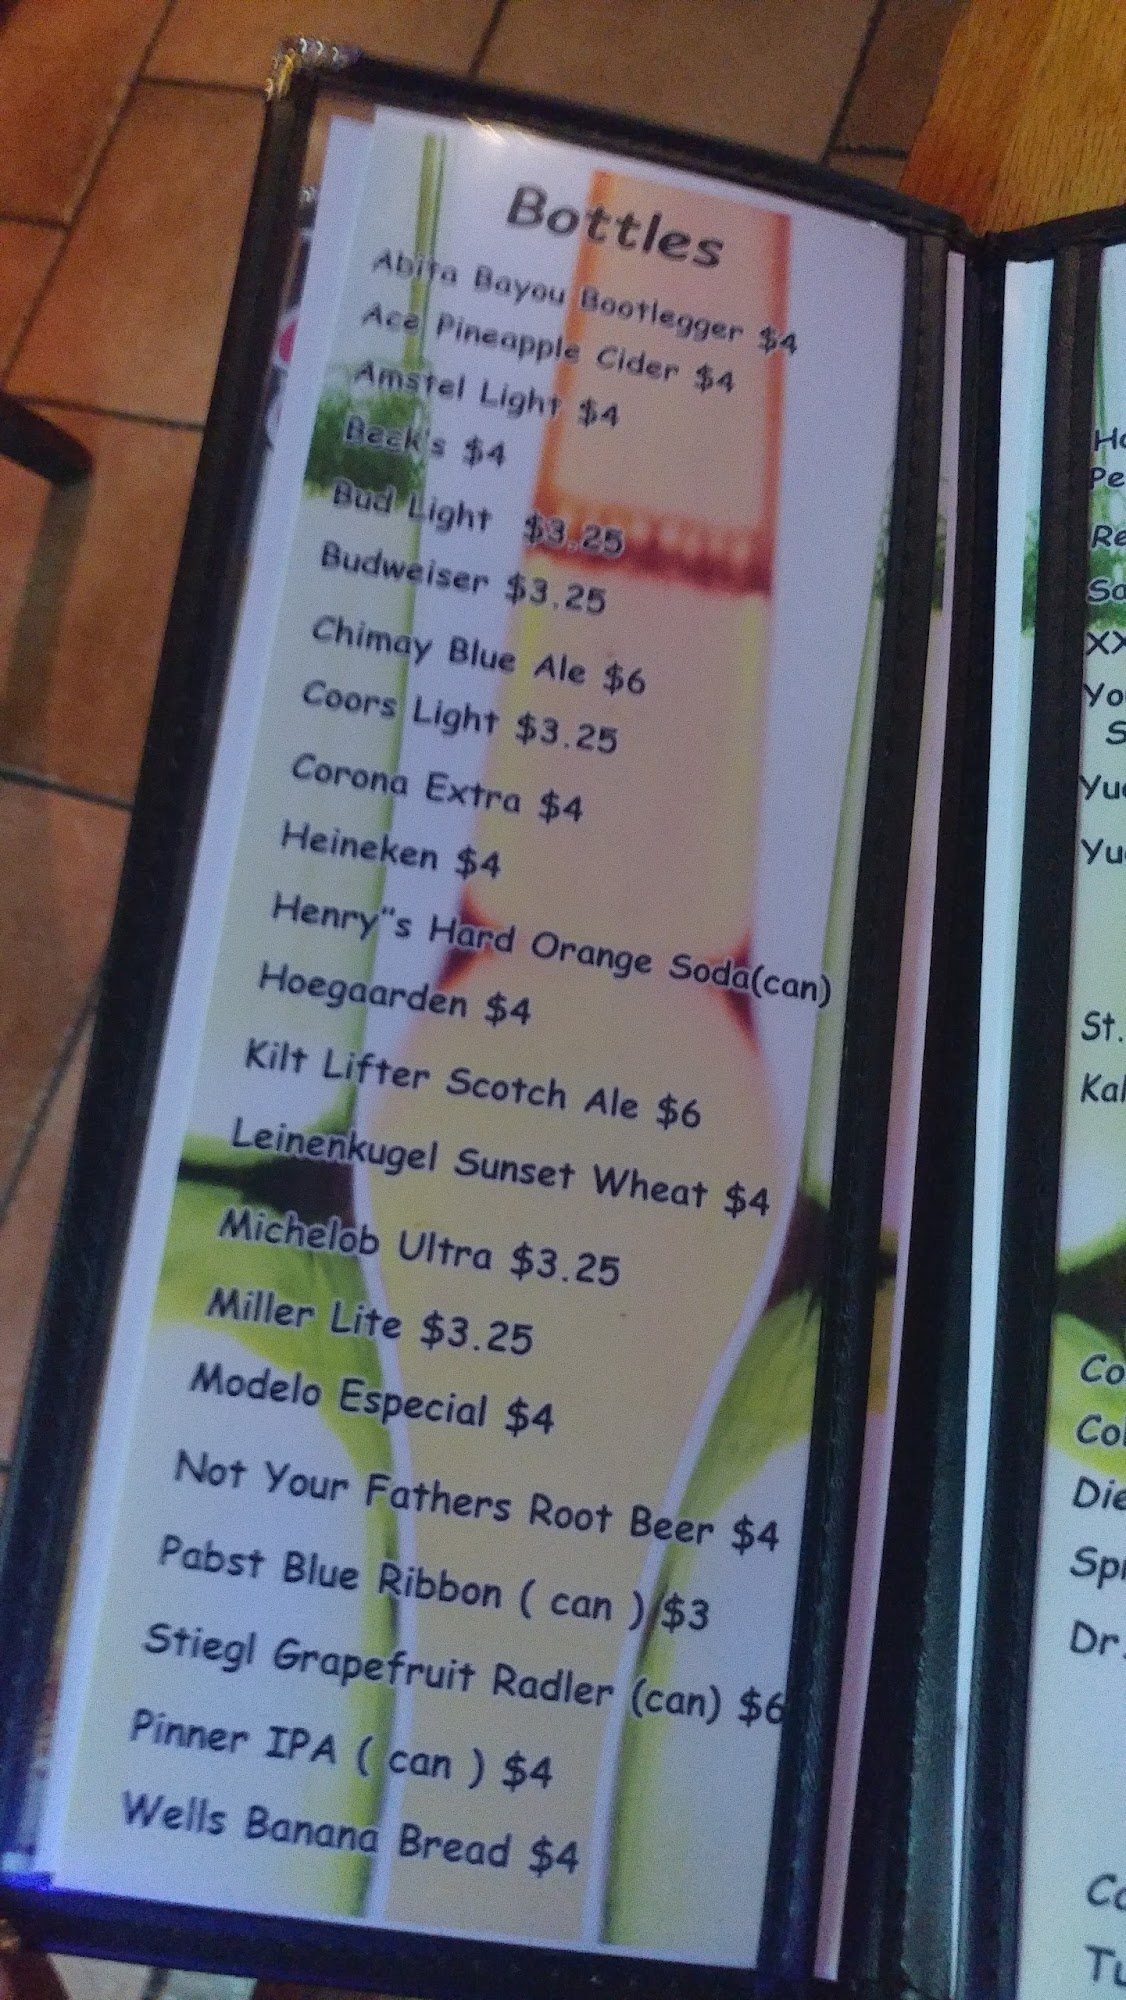 Bottles
Abita Bayou Bootlegger $4
Ace Pineapple Cider $4
Amstel Light $4
Beck's $4
Bud Light $3.25
Budweiser $3.25
Chimay Blue Ale $6
Coors Light $3.25
Corona Extra $4
Heineken $4
Henry"s Hard Orange Soda(can)
Hoegaarden $4
Kilt Lifter Scotch Ale $6
Leinenkugel Sunset Wheat $4
Michelob Ultra $3.25
Miller Lite $3.25
Modelo Especial $4
Not Your Fathers Root Beer $4
Pabst Blue Ribbon ( can ) $3
Stiegl Grapefruit Radler (can) $6
Pinner IPA ( can ) $4
Wells Banana Bread $4
St.